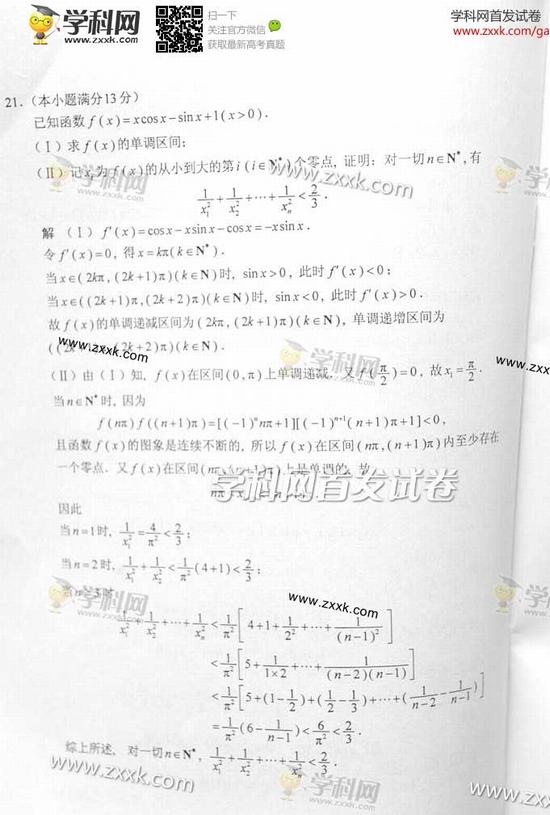 学科网
www.zxxk.com
扫一下
关注官方微信
获取最新高考真题
学科网首发试卷
http://www.zxxk.com/ga
21.(本小题满分13分)
已知函数 f(x)=xcosx-sinx+1(x>0).
(Ⅰ) 求 f(x) 的单调区间;
(Ⅱ) 记 xᵢ 为 f(x) 的从小到大的第 i (i∈N*) 个零点, 证明: 对一切 n∈N*, 有
1/x₁² + 1/x₂² + ⋯ + 1/xₙ² < 2/3 .
www.zxxk.com
学科网
解 (Ⅰ) f′(x)=cosx-xsinx-cosx=-xsinx.
令 f′(x)=0, 得 x=kπ(k∈N*).
当 x∈(2kπ,(2k+1)π)(k∈N) 时, sinx>0, 此时 f′(x)<0;
当 x∈((2k+1)π,(2k+2)π)(k∈N) 时, sinx<0, 此时 f′(x)>0.
故 f(x) 的单调递减区间为 (2kπ,(2k+1)π)(k∈N), 单调递增区间为
((2k+1)π,(2k+2)π)(k∈N).
www.zxxk.com
学科网
www.zxxk.com
(Ⅱ) 由(Ⅰ)知, f(x) 在区间 (0,π) 上单调递减. 又 f(π/2)=0, 故 x₁=π/2.
当 n∈N* 时, 因为
f(nπ)f((n+1)π)=[(-1)ⁿnπ+1][(-1)ⁿ⁺¹(n+1)π+1]<0,
且函数 f(x) 的图象是连续不断的, 所以 f(x) 在区间 (nπ,(n+1)π) 内至少存在
一个零点. 又 f(x) 在区间 (nπ,(n+1)π) 上是单调的, 故
学科网首发试卷
因此
当 n=1 时, 1/x₁² = 4/π² < 2/3 ;
当 n=2 时, 1/x₁² + 1/x₂² < 1/π² (4+1) < 2/3 ;
学科网
www.zxxk.com
当 n≥3 时,
www.zxxk.com
1/x₁² + 1/x₂² + ⋯ + 1/xₙ² < 1/π² [4+1+1/2²+⋯+1/(n-1)²]
< 1/π² [5+1/(1×2)+⋯+1/((n-2)(n-1))]
< 1/π² [5+(1-1/2)+(1/2-1/3)+⋯+(1/(n-2)-1/(n-1))]
= 1/π² (6-1/(n-1)) < 6/π² < 2/3 .
综上所述, 对一切 n∈N*, 1/x₁² + 1/x₂² + ⋯ + 1/xₙ² < 2/3 .
学科网
www.zxxk.com
学科网
www.zxxk.com